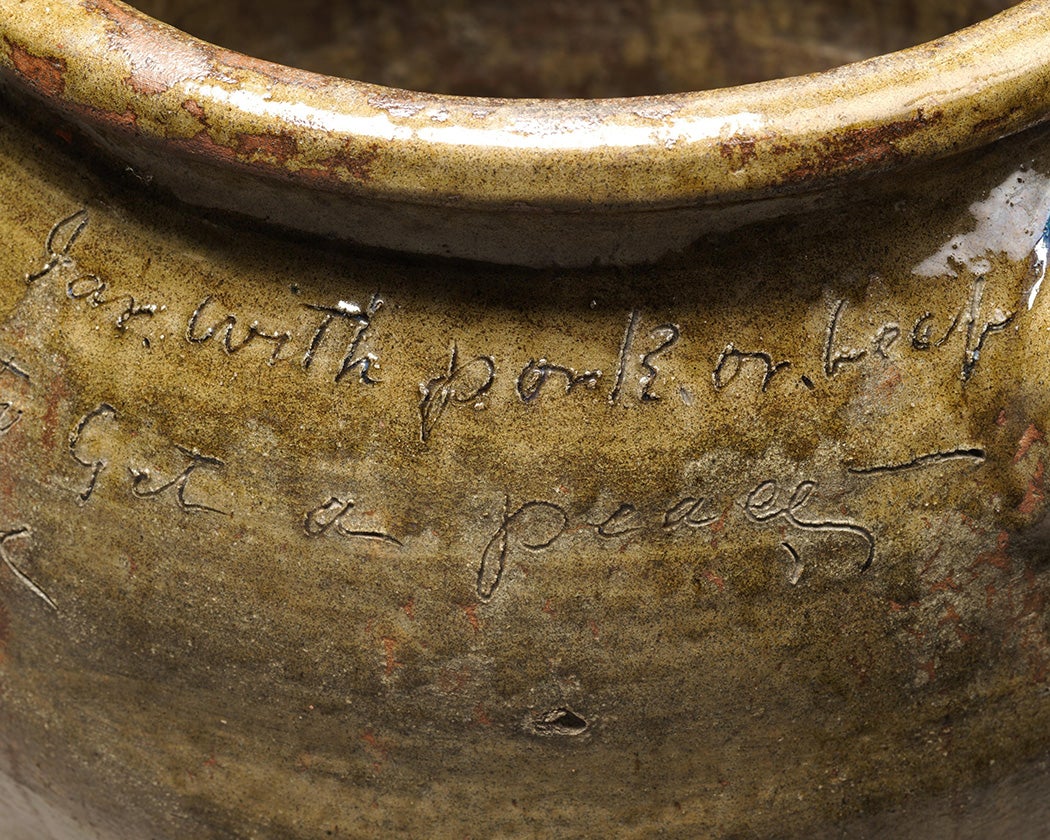 Jar. with pork. or. beef
Get a peace, —